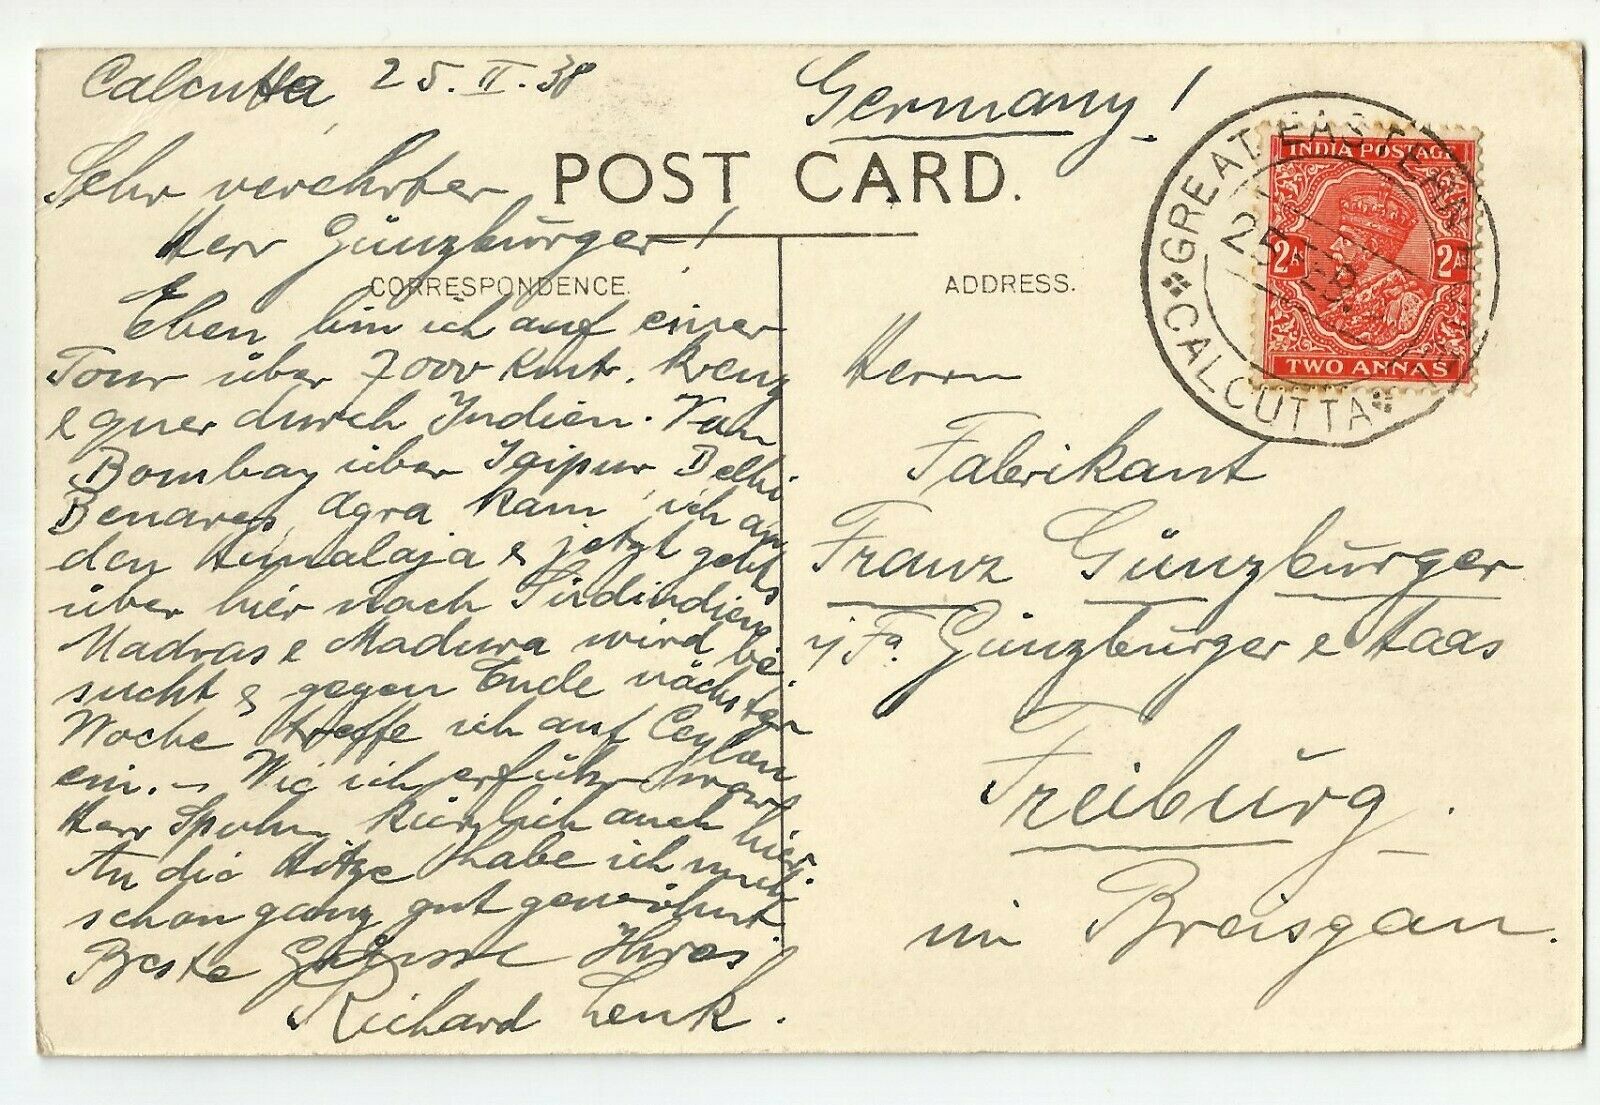 Calcutta, 25.II.38
Sehr verehrter
Herr Günzbürger!
Eben bin ich auf einer
Tour über 7000 Kmtr. Kreuz
& quer durch Indien. Von
Bombay über Jaipur Delhi.
Benares, Agra kam ich an
den Himalaja & jetzt gehts
über hier nach Südindien
Madras & Madura wird be-
sucht & gegen Ende nächster
Woche treffe ich auf Ceylon
ein. – Wie ich erfuhr war
Herr Spohn kürzlich auch hier.
An die Hitze habe ich mich
schon ganz gut gewöhnt.
Beste Grüsse Ihres
Richard Lenk.
POST CARD.
CORRESPONDENCE.
ADDRESS.
Germany!
GREAT EASTERN
CALCUTTA
25 FEB.
INDIA POSTAGE
2 As 2 As
TWO ANNAS
Herrn
Fabrikant
Franz Günzbürger
i/ Fa. Günzbürger & Haas
Freibürg.
im Breisgau.